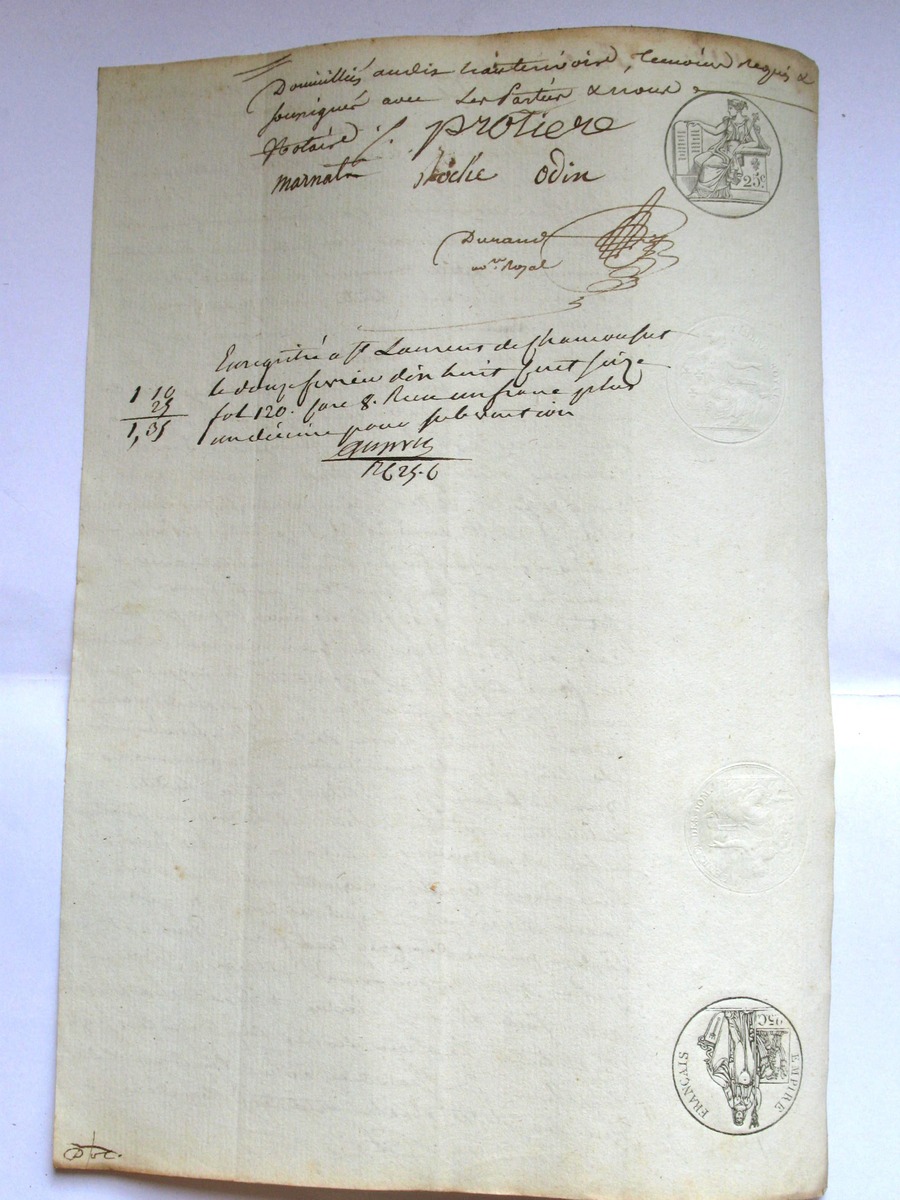 Domiciliés audit hauterivoire, temoins requis &
soussignés avec Les Parties & nous
Notaire
protiere
marnat roche odin
Durand
no.re Royal
25c
Enregistré a St Laurent de Chamousset
le douze fevrier dix huit cent seize
fol 120. case 8. Recu un franc plus
un décime pour subvention
1 10
25
1,35
EMPIRE
FRANÇAIS
25C